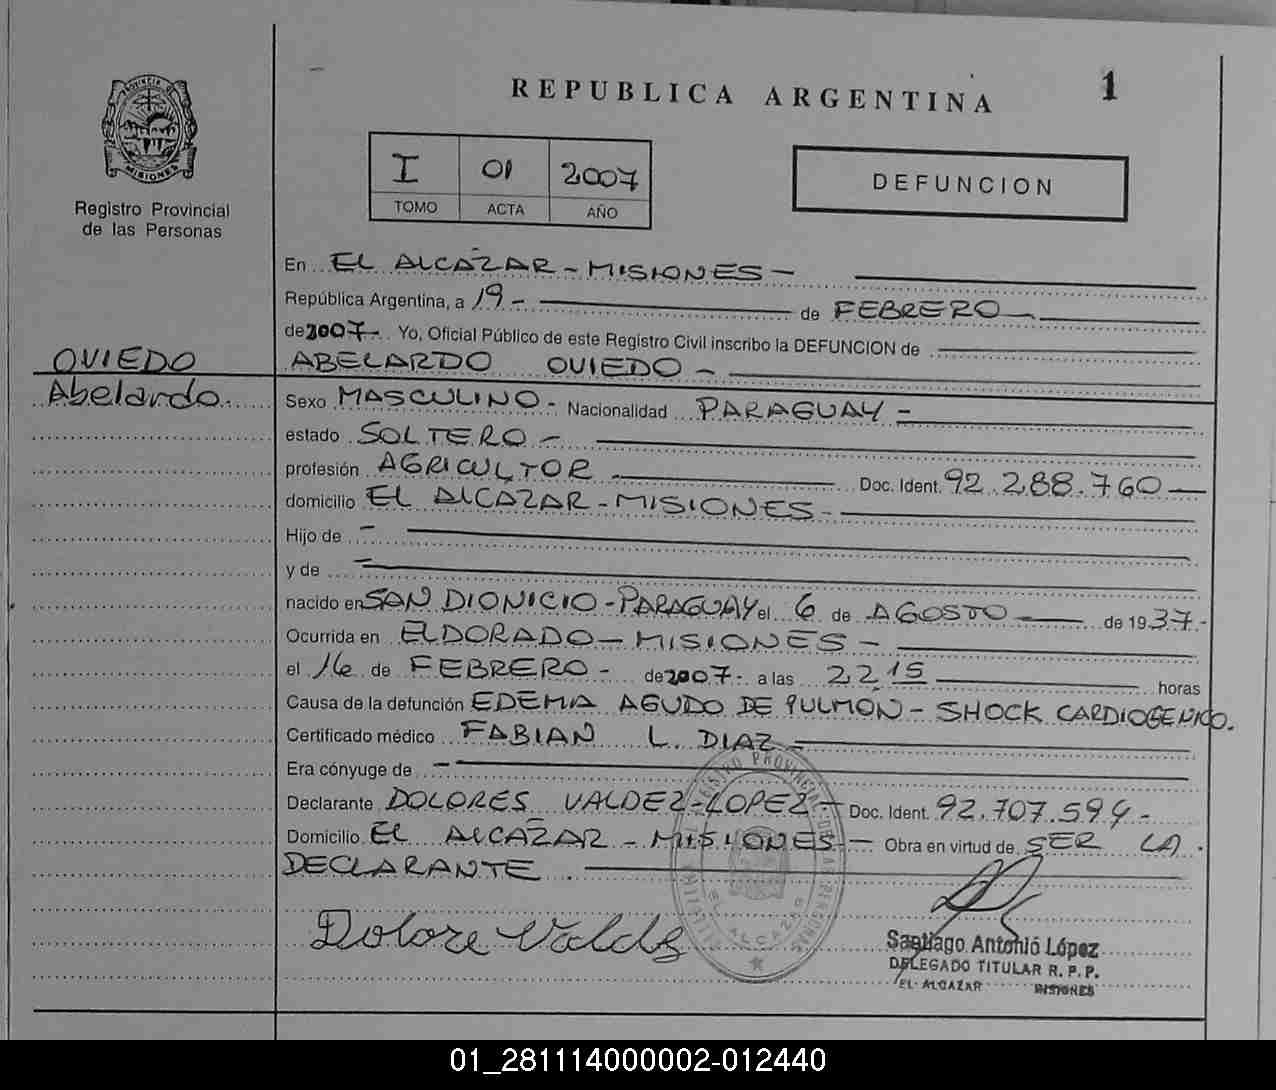 REPUBLICA ARGENTINA
1
PROVINCIA DE
MISIONES
Registro Provincial
de las Personas
I 01 2007
TOMO ACTA AÑO
DEFUNCION
En EL ALCAZAR - MISIONES -
República Argentina, a 19 - de FEBRERO
de 2007 - Yo, Oficial Público de este Registro Civil inscribo la DEFUNCION de
OVIEDO
ABELARDO OVIEDO -
Abelardo
Sexo MASCULINO - Nacionalidad PARAGUAY -
estado SOLTERO -
profesión AGRICULTOR Doc. Ident. 92.288.760
domicilio EL ALCAZAR - MISIONES -
Hijo de -
y de -
nacido en SAN DIONICIO - PARAGUAY el 6 de AGOSTO de 1937 -
Ocurrida en ELDORADO - MISIONES -
el 16 de FEBRERO - de 2007 - a las 22 15 horas
Causa de la defunción EDEMA AGUDO DE PULMON - SHOCK CARDIOGENICO.
Certificado médico FABIAN L. DIAZ -
Era cónyuge de -
Declarante DOLORES VALDEZ-LOPEZ - Doc. Ident. 92.707.594 -
Domicilio EL ALCAZAR - MISIONES - Obra en virtud de SER LA
DECLARANTE
REGISTRO PROVINCIAL DE LAS PERSONAS
EL ALCAZAR
Dolore Valdz
Santiago Antonio López
DELEGADO TITULAR R. P. P.
EL ALCAZAR MISIONES
01_281114000002-012440